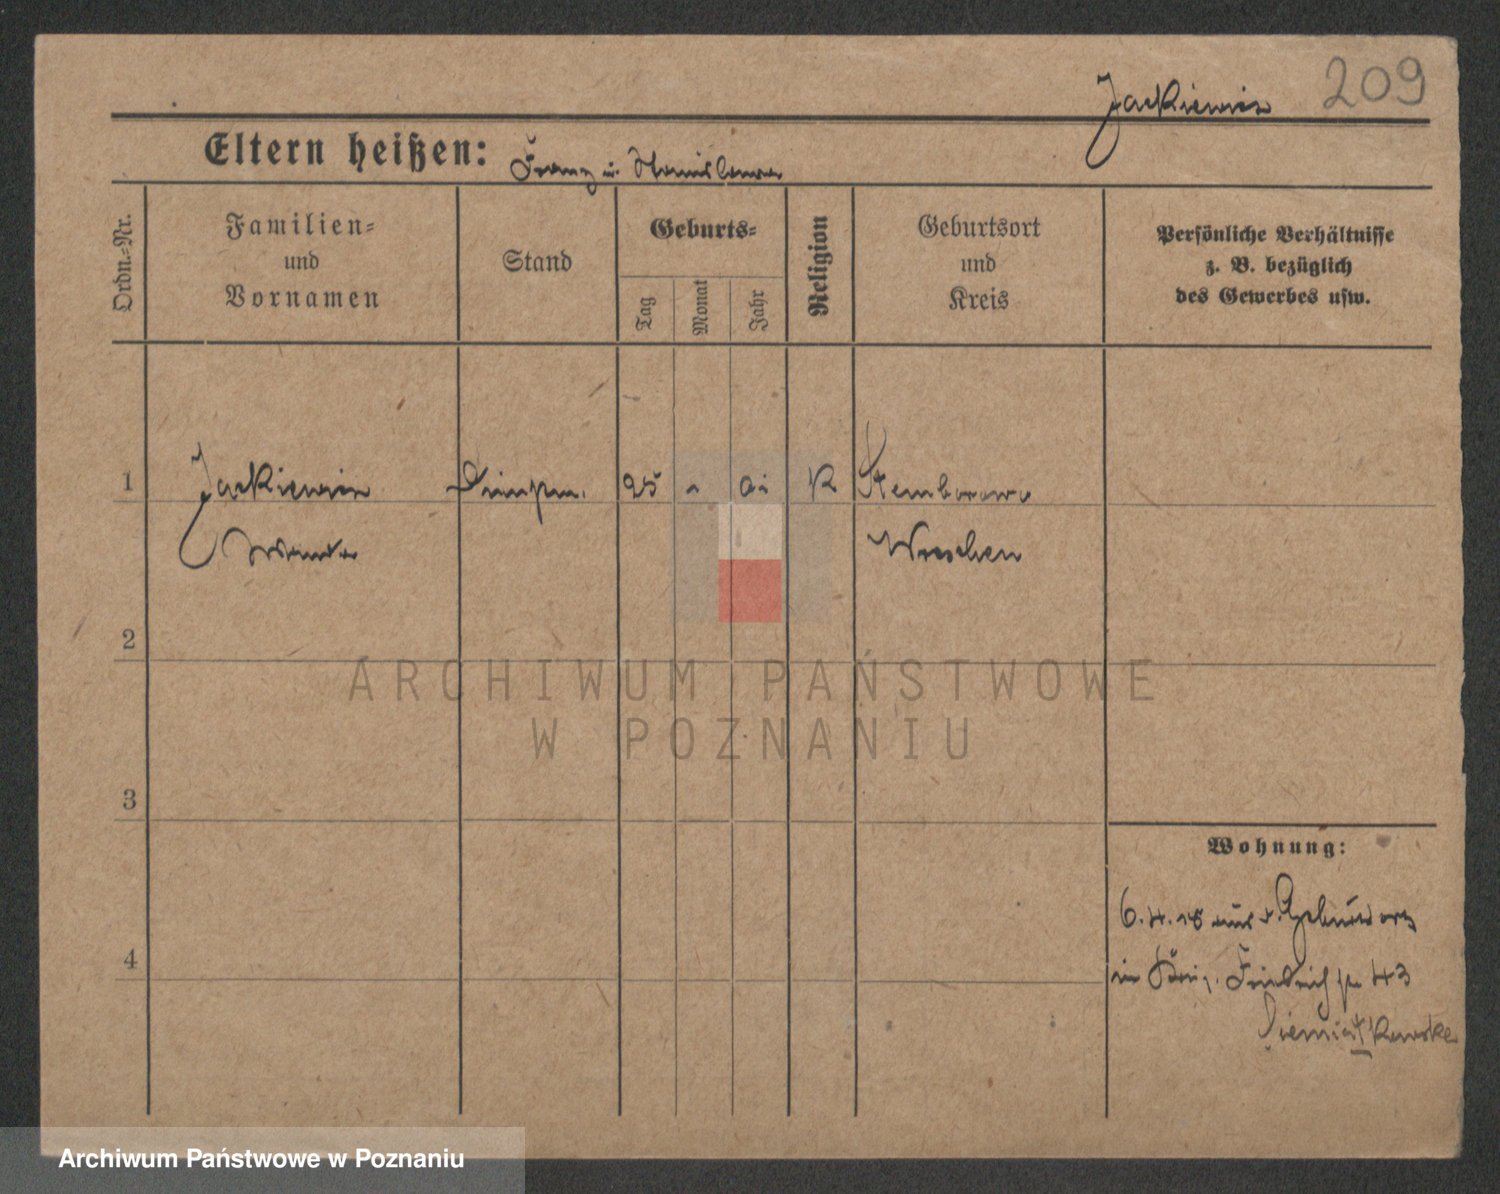 209
Jackiewicz
Eltern heißen: Franz u. Stanislawa
Ordn.-Nr.
Familien-
und
Vornamen
Stand
Geburts-
Tag
Monat
Jahr
Religion
Geburtsort
und
Kreis
Persönliche Verhältnisse
z. B. bezüglich
des Gewerbes usw.
1
Jackiewicz
25
K
Stemborowo
Wreschen
2
3
4
Wohnung:
6.4.18 aus d. Geburtsort
Friedrich 43
ARCHIWUM PAŃSTWOWE
W POZNANIU
Archiwum Państwowe w Poznaniu